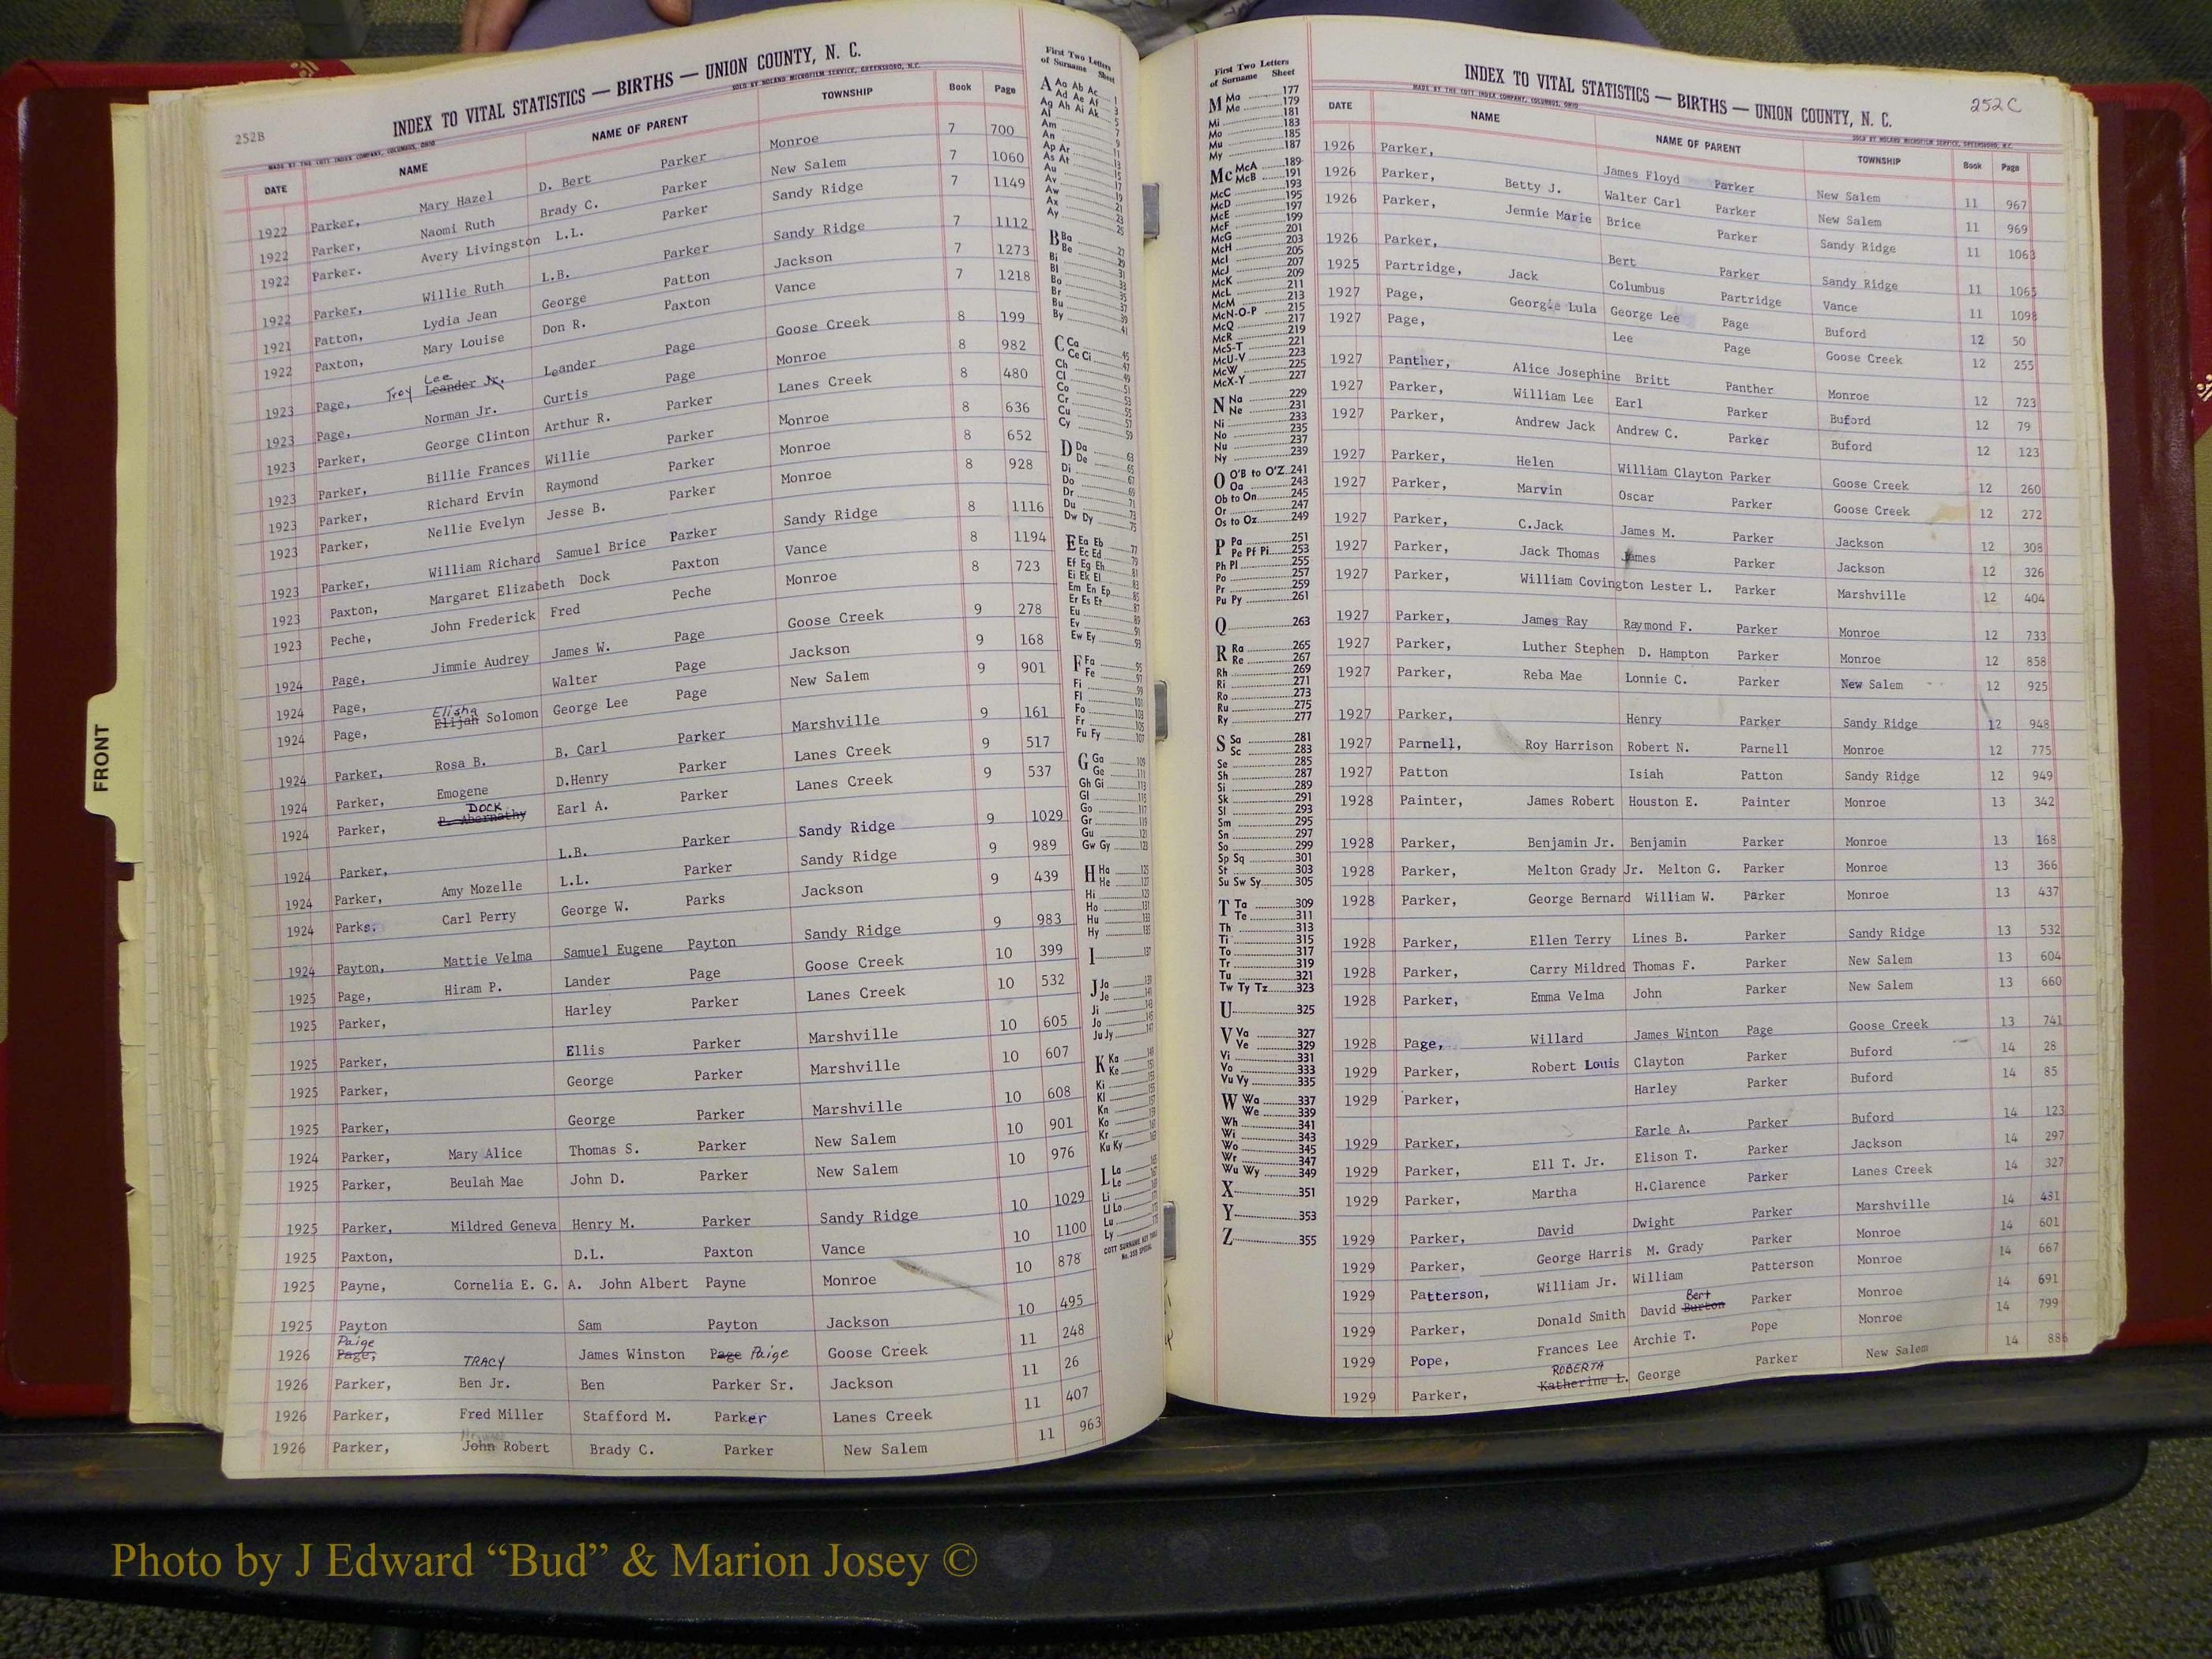 252B
INDEX TO VITAL STATISTICS — BIRTHS — UNION COUNTY, N. C.
MADE BY THE COTT INDEX COMPANY, COLUMBUS, OHIO SOLD BY NOLAND MICROFILM SERVICE, GREENSBORO, N.C.
DATE NAME NAME OF PARENT TOWNSHIP Book Page
1922 Parker, Mary Hazel D. Bert Parker Monroe 7 700
1922 Parker, Naomi Ruth Brady C. Parker New Salem 7 1060
1922 Parker. Avery Livingston L.L. Parker Sandy Ridge 7 1149
1922 Parker, Willie Ruth L.B. Parker Sandy Ridge 7 1112
1921 Patton, Lydia Jean George Patton Jackson 7 1273
1922 Paxton, Mary Louise Don R. Paxton Vance 7 1218
1923 Page, Troy Lee Leander Jr. Leander Page Goose Creek 8 199
1923 Page, Norman Jr. Curtis Page Monroe 8 982
1923 Parker, George Clinton Arthur R. Parker Lanes Creek 8 480
1923 Parker, Billie Frances Willie Parker Monroe 8 636
1923 Parker, Richard Ervin Raymond Parker Monroe 8 652
1923 Parker, Nellie Evelyn Jesse B. Parker Monroe 8 928
1923 Parker, William Richard Samuel Brice Parker Sandy Ridge 8 1116
1923 Paxton, Margaret Elizabeth Dock Paxton Vance 8 1194
1923 Peche, John Frederick Fred Peche Monroe 8 723
1924 Page, Jimmie Audrey James W. Page Goose Creek 9 278
1924 Page, Walter Page Jackson 9 168
1924 Page, Elisha Elijah Solomon George Lee Page New Salem 9 901
1924 Parker, Rosa B. B. Carl Parker Marshville 9 161
1924 Parker, Emogene D.Henry Parker Lanes Creek 9 517
1924 Parker, DOCK P. Abernathy Earl A. Parker Lanes Creek 9 537
1924 Parker, L.B. Parker Sandy Ridge 9 1029
1924 Parker, Amy Mozelle L.L. Parker Sandy Ridge 9 989
1924 Parks. Carl Perry George W. Parks Jackson 9 439
1924 Payton, Mattie Velma Samuel Eugene Payton Sandy Ridge 9 983
1925 Page, Hiram P. Lander Page Goose Creek 10 399
1925 Parker, Harley Parker Lanes Creek 10 532
1925 Parker, Ellis Parker Marshville 10 605
1925 Parker, George Parker Marshville 10 607
1925 Parker, George Parker Marshville 10 608
1924 Parker, Mary Alice Thomas S. Parker New Salem 10 901
1925 Parker, Beulah Mae John D. Parker New Salem 10 976
1925 Parker, Mildred Geneva Henry M. Parker Sandy Ridge 10 1029
1925 Paxton, D.L. Paxton Vance 10 1100
1925 Payne, Cornelia E. G. A. John Albert Payne Monroe 10 878
1925 Payton Sam Payton Jackson 10 495
1926 Paige Page, James Winston Page Paige Goose Creek 11 248
1926 Parker, TRACY Ben Jr. Ben Parker Sr. Jackson 11 26
1926 Parker, Fred Miller Stafford M. Parker Lanes Creek 11 407
1926 Parker, John Robert Brady C. Parker New Salem 11 963
First Two Letters
of Surname Sheet
A Aa Ab Ac 1
Ad Ae Af 3
Ag Ah Ai Ak 5
Al 7
Am 9
An 11
Ap Ar 13
As At 15
Au 17
Av 19
Aw 21
Ax 23
Ay 25
B Ba 27
Be 29
Bi 31
Bl 33
Bo 35
Br 37
Bu 39
By 41
C Ca 45
Ce Ci
Ch 47
Cl 49
Co 51
Cr 53
Cu 57
Cy 59
D Da 63
De 65
Di 67
Do 69
Dr 71
Du 73
Dw Dy 75
E Ea Eb 77
Ec Ed 79
Ef Eg Eh 81
Ei Ek El 83
Em En Ep 85
Er Es Et 87
Eu 89
Ev 91
Ew Ey 93
F Fa 95
Fe 97
Fi 99
Fl 101
Fo 103
Fr 105
Fu Fy 107
G Ga 109
Ge 111
Gh Gi 113
Gl 115
Go 117
Gr 119
Gu 121
Gw Gy 123
H Ha 125
He 127
Hi 129
Ho 131
Hu 133
Hy 135
I 137
J Ja
Je
Ji
Jo
Ju Jy
K Ka
Ke
Ki
Kl
Kn
Ko
Kr
Ku Ky
L La
Le
Li
Ll Lo
Lu
Ly
FRONT
252C
INDEX TO VITAL STATISTICS — BIRTHS — UNION COUNTY, N. C.
MADE BY THE COTT INDEX COMPANY, COLUMBUS, OHIO SOLD BY NOLAND MICROFILM SERVICE, GREENSBORO, N.C.
First Two Letters
of Surname Sheet
M Ma 177
Me 179
Mi 181
Mo 183
Mu 185
My 187
Mc McA 189
McB 191
McC 193
McD 195
McE 197
McF 199
McG 201
McH 203
McI 205
McJ 207
McK 209
McL 211
McM 213
McN-O-P 215
McQ 217
McR 219
McS-T 221
McU-V 223
McW 225
McX-Y 227
N Na 229
Ne 231
Ni 233
No 235
Nu 237
Ny 239
O O'B to O'Z 241
Oa 243
Ob to On 245
Or 247
Os to Oz 249
P Pa 251
Pe Pf Pi 253
Ph Pl 255
Po 257
Pr 259
Pu Py 261
Q 263
R Ra 265
Re 267
Rh 269
Ri 271
Ro 273
Ru 275
Ry 277
S Sa 281
Sc 283
Se 285
Sh 287
Si 289
Sk 291
Sl 293
Sm 295
Sn 297
So 299
Sp Sq 301
St 303
Su Sw Sy 305
T Ta 309
Te 311
Th 313
Ti 315
To 317
Tr 319
Tu 321
Tw Ty Tz 323
U 325
V Va 327
Ve 329
Vi 331
Vo 333
Vu Vy 335
W Wa 337
We 339
Wh 341
Wi 343
Wo 345
Wr 347
Wu Wy 349
X 351
Y 353
Z 355
DATE NAME NAME OF PARENT TOWNSHIP Book Page
1926 Parker, James Floyd Parker New Salem 11 967
1926 Parker, Betty J. Walter Carl Parker New Salem 11 969
1926 Parker, Jennie Marie Brice Parker Sandy Ridge 11 1063
1926 Parker, Bert Parker Sandy Ridge 11 1065
1925 Partridge, Jack Columbus Partridge Vance 11 1098
1927 Page, Georgie Lula George Lee Page Buford 12 50
1927 Page, Lee Page Goose Creek 12 255
1927 Panther, Alice Josephine Britt Panther Monroe 12 723
1927 Parker, William Lee Earl Parker Buford 12 79
1927 Parker, Andrew Jack Andrew C. Parker Buford 12 123
1927 Parker, Helen William Clayton Parker Goose Creek 12 260
1927 Parker, Marvin Oscar Parker Goose Creek 12 272
1927 Parker, C.Jack James M. Parker Jackson 12 308
1927 Parker, Jack Thomas James Parker Jackson 12 326
1927 Parker, William Covington Lester L. Parker Marshville 12 404
1927 Parker, James Ray Raymond F. Parker Monroe 12 733
1927 Parker, Luther Stephen D. Hampton Parker Monroe 12 858
1927 Parker, Reba Mae Lonnie C. Parker New Salem 12 925
1927 Parker, Henry Parker Sandy Ridge 12 948
1927 Parnell, Roy Harrison Robert N. Parnell Monroe 12 775
1927 Patton Isiah Patton Sandy Ridge 12 949
1928 Painter, James Robert Houston E. Painter Monroe 13 342
1928 Parker, Benjamin Jr. Benjamin Parker Monroe 13 168
1928 Parker, Melton Grady Jr. Melton G. Parker Monroe 13 366
1928 Parker, George Bernard William W. Parker Monroe 13 437
1928 Parker, Ellen Terry Lines B. Parker Sandy Ridge 13 532
1928 Parker, Carry Mildred Thomas F. Parker New Salem 13 604
1928 Parker, Emma Velma John Parker New Salem 13 660
1928 Page, Willard James Winton Page Goose Creek 13 741
1929 Parker, Robert Louis Clayton Parker Buford 14 28
1929 Parker, Harley Parker Buford 14 85
1929 Parker, Earle A. Parker Buford 14 123
1929 Parker, Ell T. Jr. Elison T. Parker Jackson 14 297
1929 Parker, Martha H.Clarence Parker Lanes Creek 14 327
1929 Parker, David Dwight Parker Marshville 14 431
1929 Parker, George Harris M. Grady Parker Monroe 14 601
1929 Patterson, William Jr. William Patterson Monroe 14 667
1929 Parker, Donald Smith David Bert Burton Parker Monroe 14 691
1929 Pope, Frances Lee Archie T. Pope Monroe 14 799
1929 Parker, ROBERTA Katherine L. George Parker New Salem 14 886
Photo by J Edward “Bud” & Marion Josey ©